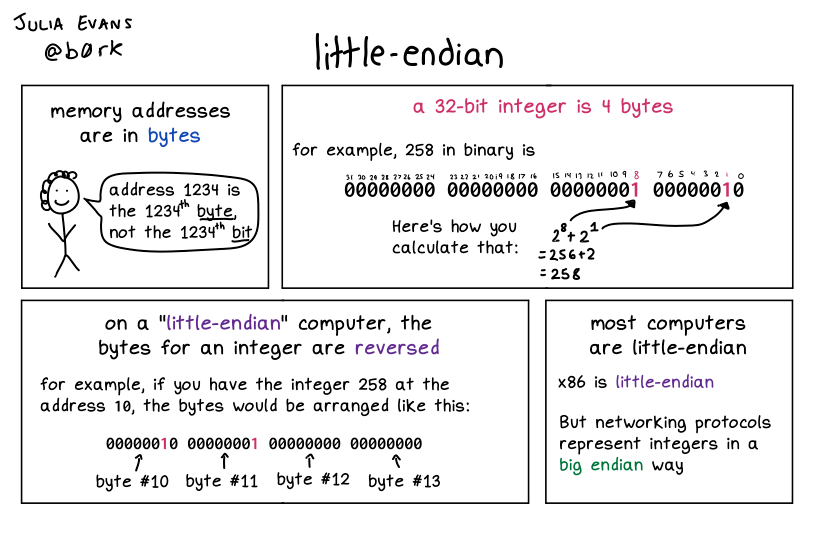 JULIA EVANS
@b0rk
little-endian
memory addresses
are in bytes
address 1234 is
the 1234th byte,
not the 1234th bit
a 32-bit integer is 4 bytes
for example, 258 in binary is
31 30 29 28 27 26 25 24 23 22 21 20 19 18 17 16 15 14 13 12 11 10 9 8 7 6 5 4 3 2 1 0
00000000 00000000 00000001 00000010
Here's how you
calculate that:
2^8 + 2^1
= 256 + 2
= 258
on a "little-endian" computer, the
bytes for an integer are reversed
for example, if you have the integer 258 at the
address 10, the bytes would be arranged like this:
00000010 00000001 00000000 00000000
byte #10 byte #11 byte #12 byte #13
most computers
are little-endian
x86 is little-endian
But networking protocols
represent integers in a
big endian way